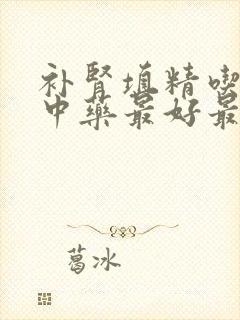 补肾填精喫
中药最好最
葛冰